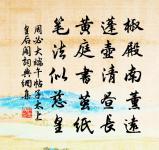 椒殿南薰遠
蓬壺清晝長
黃庭書茧紙
笔法似慈皇
周必大端午帖子太上
皇后閣詞典網集